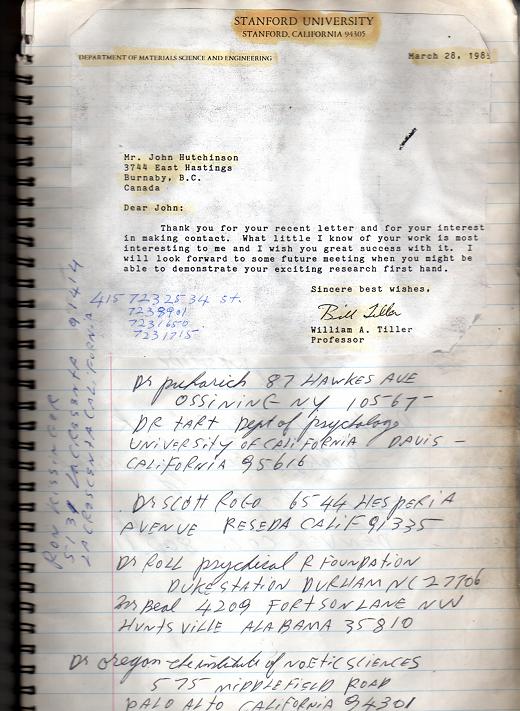 STANFORD UNIVERSITY
STANFORD, CALIFORNIA 94305
DEPARTMENT OF MATERIALS SCIENCE AND ENGINEERING
March 28, 198
Mr. John Hutchinson
3744 East Hastings
Burnaby, B.C.
Canada
Dear John:
Thank you for your recent letter and for your interest
in making contact. What little I know of your work is most
interesting to me and I wish you great success with it. I
will look forward to some future meeting when you might be
able to demonstrate your exciting research first hand.
Sincere best wishes,
Bill Tiller
William A. Tiller
Professor
415 7232534 st.
7238901
7231650
7231715
RON KISSINGER
5131 LACRESSENTA 91414
LACRESCENTA CALIFORNIA
Dr puharich 87 HAWKES AVE
OSSINING NY 10567-
DR TART Dept of psychology
UNIVERSITY OF CALIFORNIA DAVIS -
CALIFORNIA 95616
Dr SCOTT ROGO 6544 HESPERIA
AVENUE RESEDA CALIF 91335
Dr ROLL psychical R FOUNDATION
DUKE STATION DURHAM NC 27706
Dr Beal 4209 FORTSON LANE NW
HUNTSVILLE ALABAMA 35810
Dr oregon institute of NOETIC SCIENCES
575 MIDDLEFIELD ROAD
PALO ALTO CALIFORNIA 94301